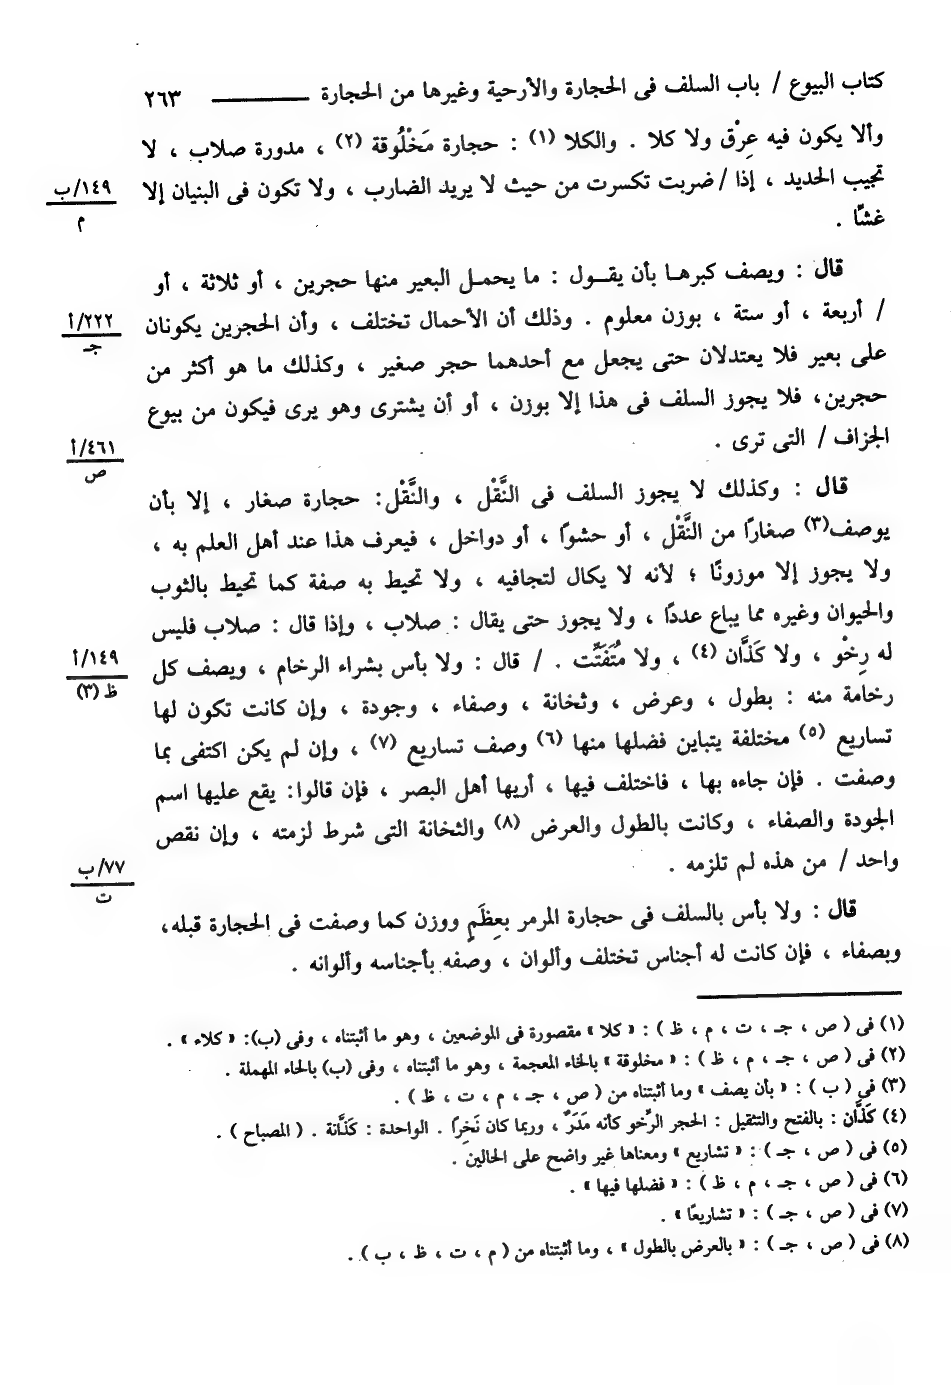 كتاب البيوع / باب السلف فى الحجارة والأرحية وغيرها من الحجارة ــــــــــــ ٢٦٣
وألا يكون فيه عِرْق ولا كلا . والكلا (١) : حجارة مَخْلُوقة (٢) ، مدورة صلاب ، لا
تجيب الحديد ، إذا / ضربت تكسرت من حيث لا يريد الضارب ، ولا تكون فى البنيان إلا
١٤٩/ب
م
غشًّا .
قال : ويصف كبرهـا بأن يقـول : ما يحمـل البعير منها حجرين ، أو ثلاثة ، أو
/ أربعة ، أو ستة ، بوزن معلوم . وذلك أن الأحمال تختلف ، وأن الحجرين يكونان
٢٢٢/أ
جـ
على بعير فلا يعتدلان حتى يجعل مع أحدهما حجر صغير ، وكذلك ما هو أكثر من
حجرين، فلا يجوز السلف فى هذا إلا بوزن ، أو أن يشترى وهو يرى فيكون من بيوع
الجزاف / التى ترى .
٤٦١/أ
ص
قال : وكذلك لا يجوز السلف فى النَّقْل ، والنَّقْل: حجارة صغار ، إلا بأن
يوصف(٣) صغارًا من النَّقْل ، أو حشوًا ، أو دواخل ، فيعرف هذا عند أهل العلم به ،
ولا يجوز إلا موزونًا ؛ لأنه لا يكال لتجافيه ، ولا تحيط به صفة كما تحيط بالثوب
والحيوان وغيره مما يباع عددًا ، ولا يجوز حتى يقال : صلاب ، وإذا قال : صلاب فليس
له رِخْو ، ولا كَذَّان (٤) ، ولا مُتَفَتِّت . / قال : ولا بأس بشراء الرخام ، ويصف كل
١٤٩/أ
ظ (٣)
رخامة منه : بطول ، وعرض ، وثخانة ، وصفاء ، وجودة ، وإن كانت تكون لها
تساريع (٥) مختلفة يتباين فضلها منها (٦) وصف تساريع (٧) ، وإن لم يكن اكتفى بما
وصفت . فإن جاءه بها ، فاختلف فيها ، أريها أهل البصر ، فإن قالوا: يقع عليها اسم
الجودة والصفاء ، وكانت بالطول والعرض (٨) والثخانة التى شرط لزمته ، وإن نقص
واحد / من هذه لم تلزمه .
٧٧/ب
ت
قال : ولا بأس بالسلف فى حجارة المرمر بعِظَمٍ ووزن كما وصفت فى الحجارة قبله،
وبصفاء ، فإن كانت له أجناس تختلف وألوان ، وصفه بأجناسه وألوانه .
(١) فى ( ص ، جـ ، ت ، م ، ظ ) : « كلا » مقصورة فى الموضعين ، وهو ما أثبتناه ، وفى (ب): « كلاء » .
(٢) فى ( ص ، جـ ، م ، ظ ) : « مخلوقة » بالخاء المعجمة ، وهو ما أثبتناه ، وفى (ب) بالحاء المهملة .
(٣) فى ( ب ) : « بأن يصف » وما أثبتناه من ( ص ، جـ ، م ، ت ، ظ ) .
(٤) كَذَّان : بالفتح والتثقيل : الحجر الرِّخو كأنه مَدَرٌ ، وربما كان نَخِرًا . الواحدة : كَذَّانة . ( المصباح ) .
(٥) فى ( ص ، جـ ) : « تشاريع » ومعناها غير واضح على الحالين .
(٦) فى ( ص ، جـ ، م ، ظ ) : « فضلها فيها » .
(٧) فى ( ص ، جـ ) : « تشاريعًا » .
(٨) فى ( ص ، جـ ) : « بالعرض بالطول » ، وما أثبتناه من ( م ، ت ، ظ ، ب ) .